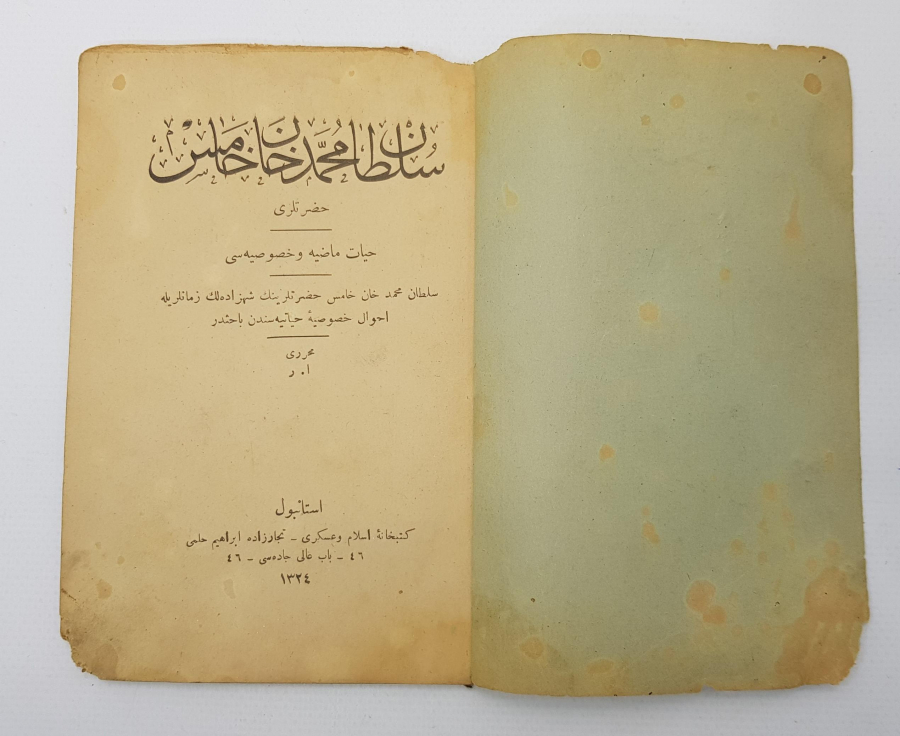 سلطان محمد خان خامس
حضرتلری
حیات ماضیه و خصوصیه‌سی
سلطان محمد خان خامس حضرتلرینك شهزاده‌لك زمانلریله
احوال خصوصیۀ حیاتیه‌سندن باحثدر
محرری
ا. ر
استانبول
كتبخانۀ اسلام وعسكری – تجارزاده ابراهیم حلمی
٤٦ – باب عالی جاده‌سی – ٤٦
١٣٢٤